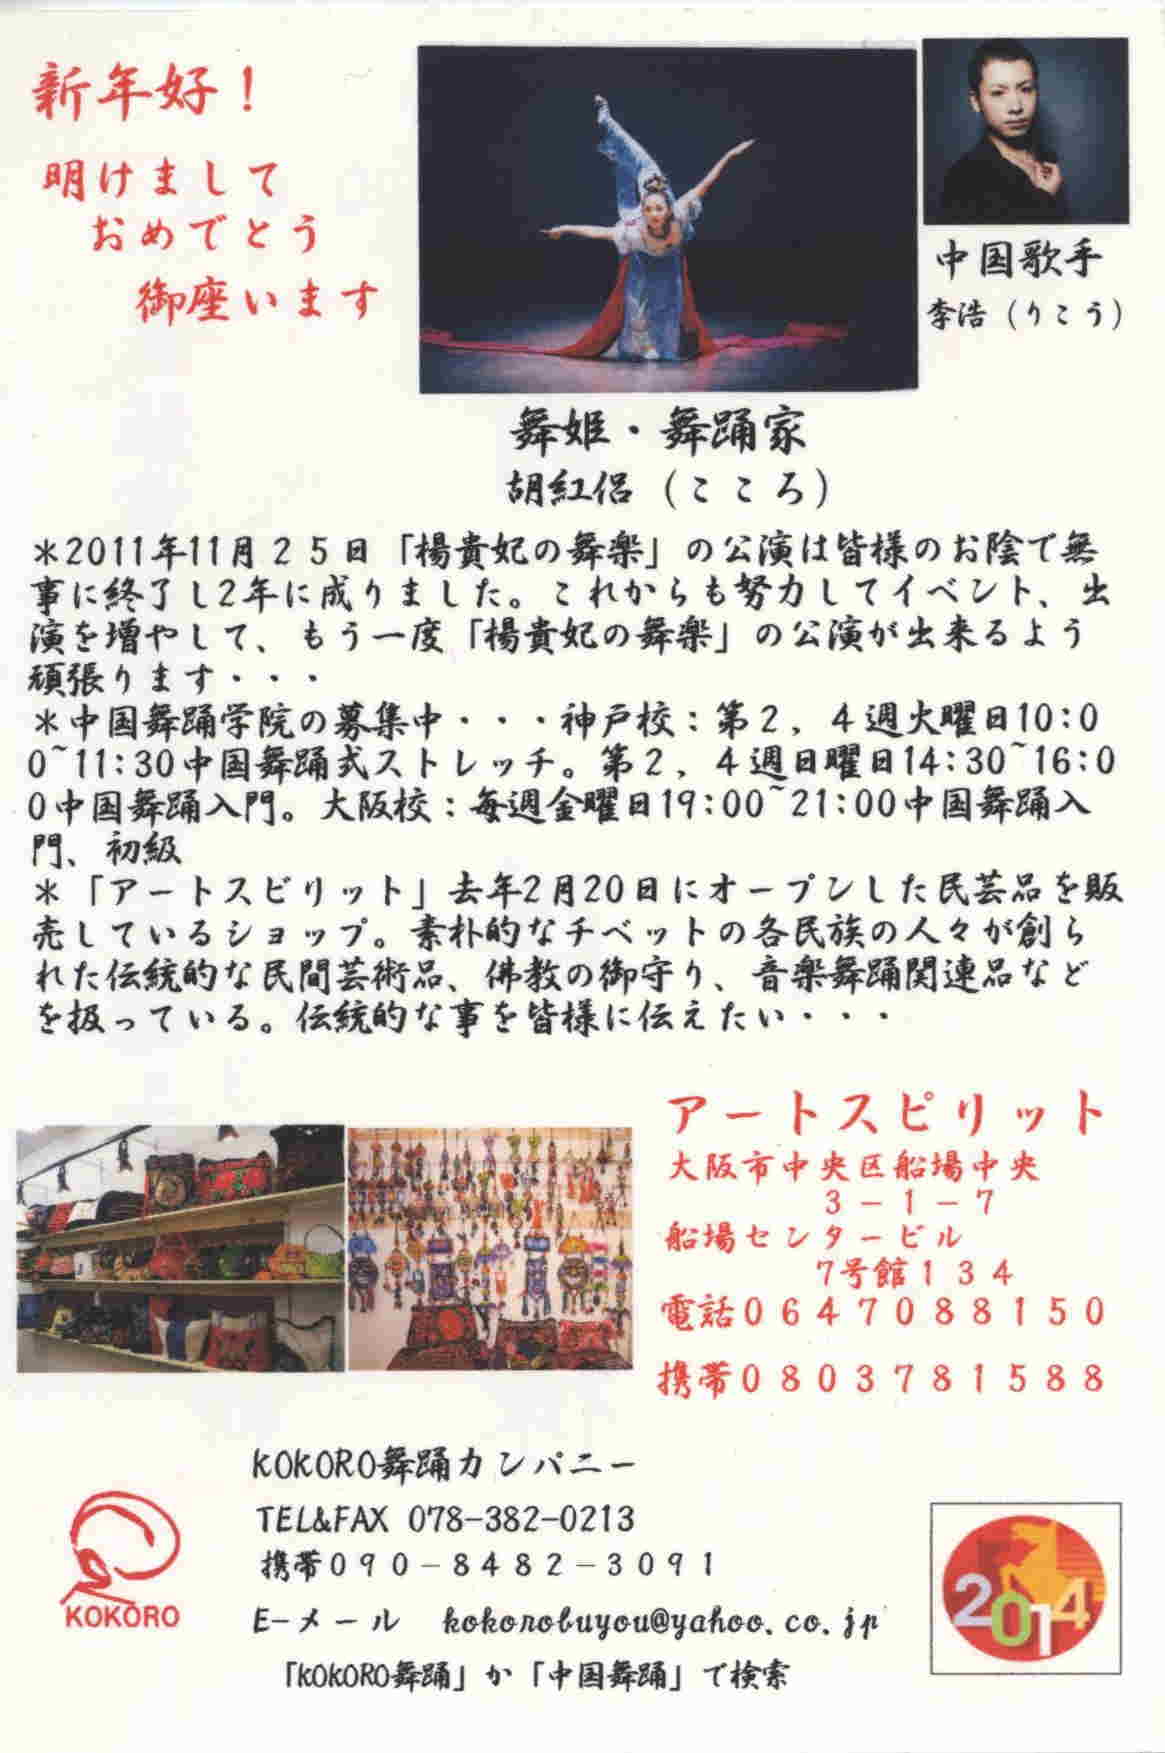 新年好！
明けまして
おめでとう
御座います
中国歌手
李浩（りこう）
舞姫・舞踊家
胡紅侶（こころ）
＊2011年11月２５日「楊貴妃の舞楽」の公演は皆様のお陰で無
事に終了し2年に成りました。これからも努力してイベント、出
演を増やして、もう一度「楊貴妃の舞楽」の公演が出来るよう
頑張ります・・・
＊中国舞踊学院の募集中・・・神戸校：第２，４週火曜日10:0
0~11:30中国舞踊式ストレッチ。第２，４週日曜日14:30~16:0
0中国舞踊入門。大阪校：毎週金曜日19:00~21:00中国舞踊入
門、初級
＊「アートスピリット」去年2月20日にオープンした民芸品を販
売しているショップ。素朴的なチベットの各民族の人々が創ら
れた伝統的な民間芸術品、佛教の御守り、音楽舞踊関連品など
を扱っている。伝統的な事を皆様に伝えたい・・・
アートスピリット
大阪市中央区船場中央
３－１－７
船場センタービル
７号館１３４
電話０６４７０８８１５０
携帯０８０３７８１５８８
KOKORO舞踊カンパニー
TEL&FAX 078-382-0213
携帯０９０－８４８２－３０９１
E-メール kokorobuyou@yahoo.co.jp
「KOKORO舞踊」か「中国舞踊」で検索
KOKORO
2014